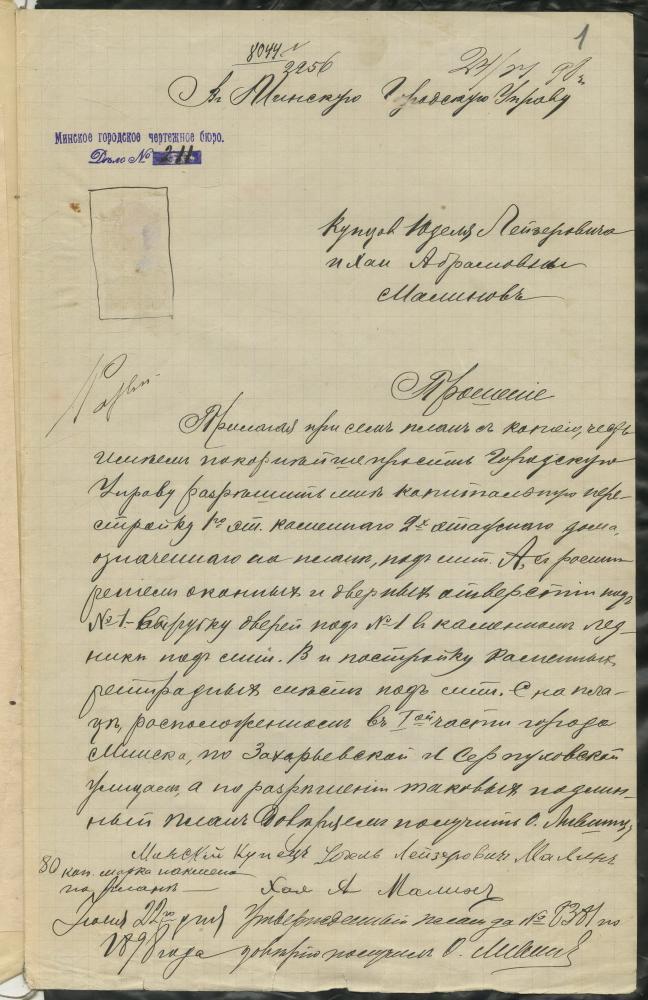 1
8044
2256
Въ Минскую Городскую Управу
Минское городское чертежное бюро.
Дѣло № 211
Купцов Юделя Лейзеровича
и Хаи Абрамовны
Малиновъ
Прошеніе
Прилагая при семъ планъ съ копіею, честь
имѣемъ покорнѣйше просить Городскую
Управу разрѣшить мнѣ капитальную пере-
стройку 1го эт. каменнаго 2х этажнаго дома,
означеннаго на планѣ, подъ лит. А, съ
оконныхъ и дверныхъ отверстій подъ
№ 1 вырубку дверей подъ № 1 въ каменномъ лед-
никѣ подъ лит. В и постройку каменныхъ
ретирадныхъ мѣстъ подъ лит. С на пла-
цѣ, расположенномъ въ Iой части города
Минска, по Захарьевской и Серпуховской
улицамъ, а по разрѣшеніи таковыхъ подлин-
ный планъ довѣряемъ получить О.
Минскій Купецъ Юдель Лейзеровичъ Малинъ
80 коп. марка
на планѣ
Хая А Малинъ
Іюня 22го дня
1898 года
Утвержденный планъ за № 8381 по
довѣрію получилъ О.